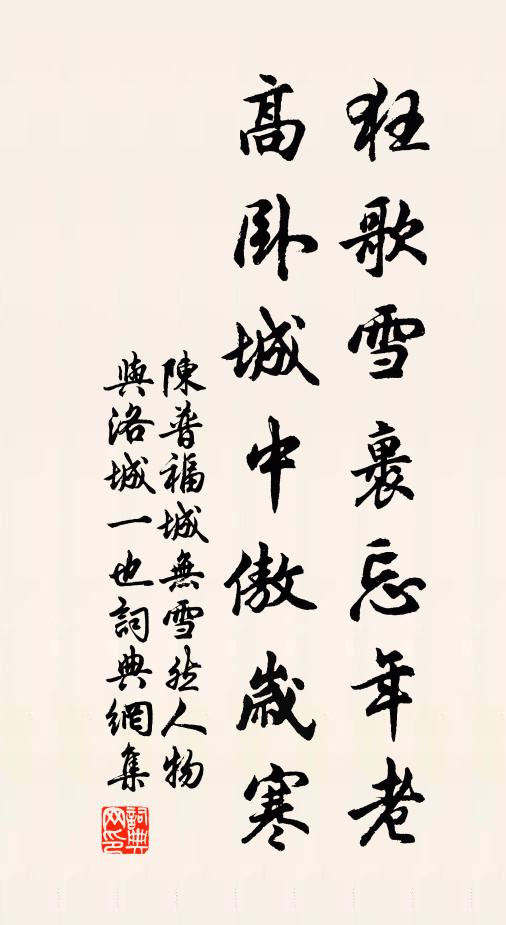 狂歌雪裏忘年老
高卧城中傲歲寒
陳普福城無雪然人物
與洛城一也詞典網集
詞典網印